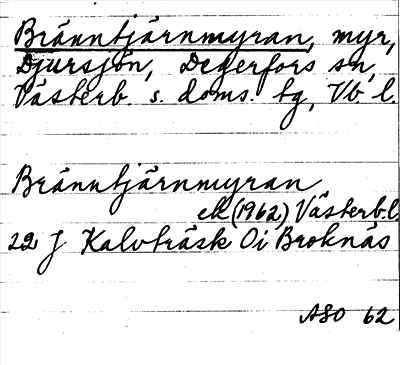 Bränntjärnmyran, myr,
Djursjön, Degerfors sn,
Västerb. s. doms. tg, Vb l.
Bränntjärnmyran
ek (1962) Västerb.l.
22 J Kalvträsk 0i Broknäs
ASO 62